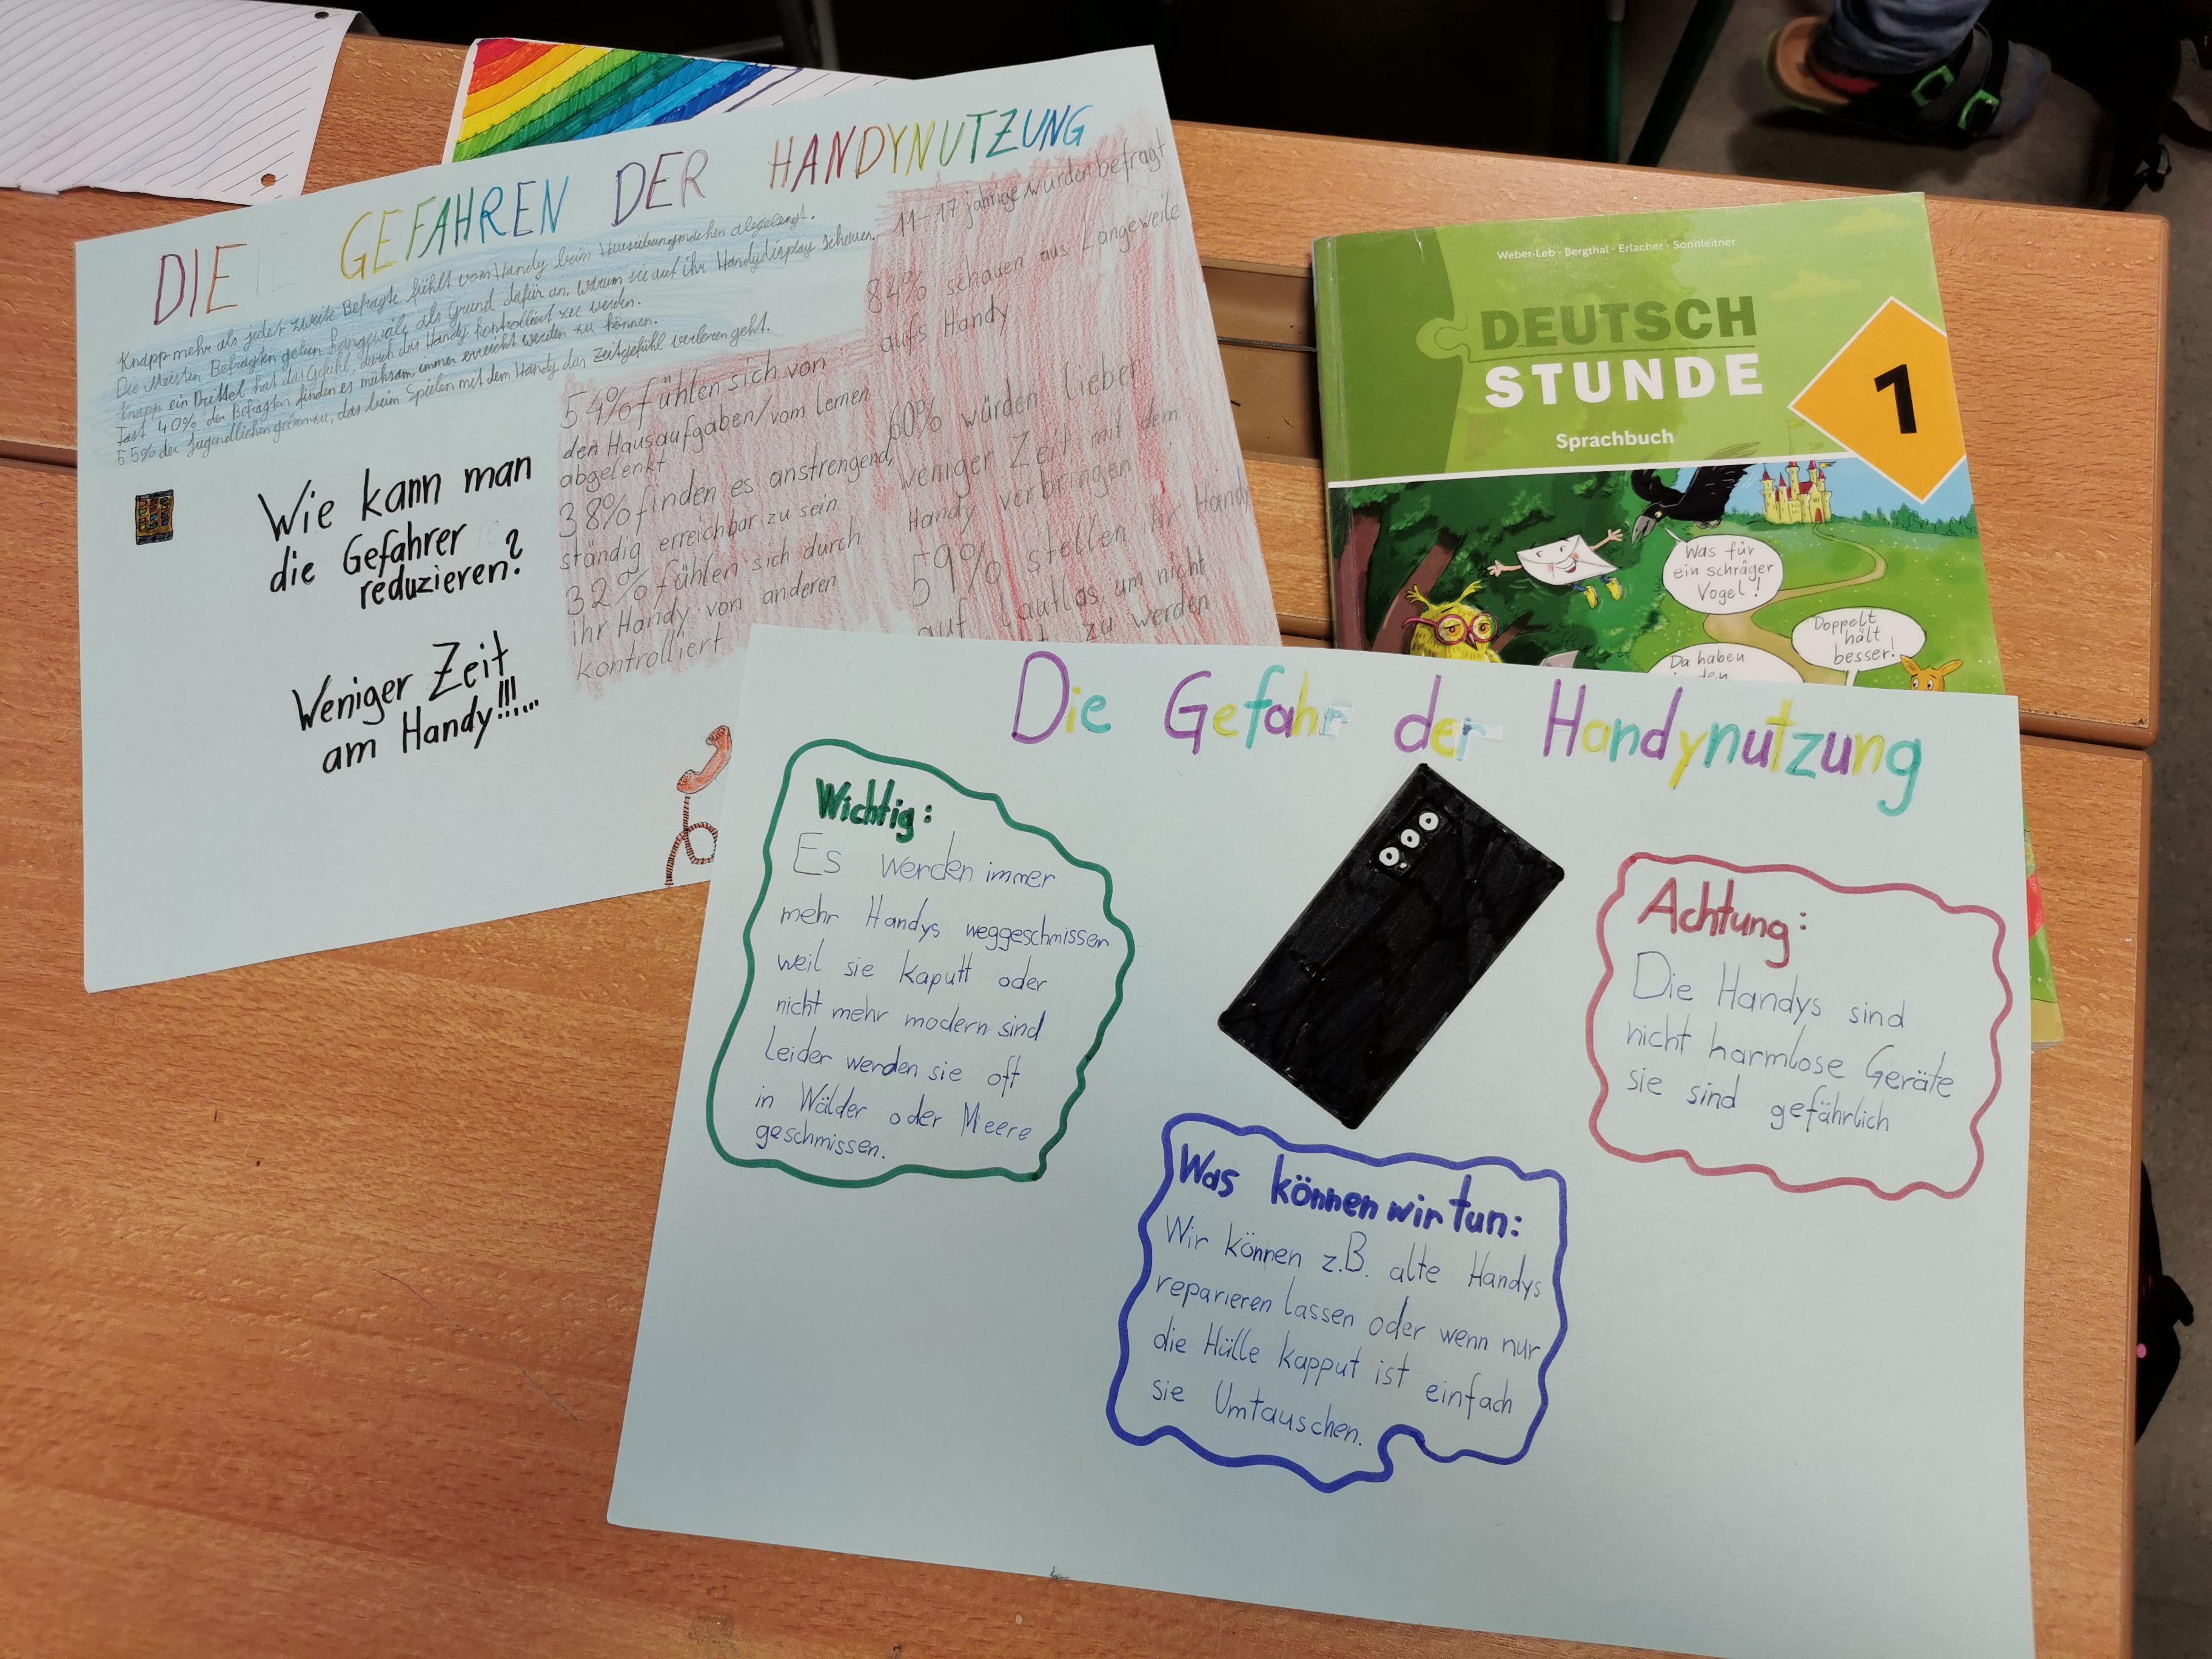 DIE GEFAHREN DER HANDYNUTZUNG
Knapp mehr als jeder zweite Befragte fühlt vom Handy beim Hausübungmachen abgelengt.
Die Meisten Befragten geben Langeweile als Grund dafür an, warum sie auf ihr Handydisplay schauen.
Knapp ein Drittel hat das Gefühl, durch das Handy kontrolliert zu werden.
Fast 40% der Befragten finden es mühsam, immer erreicht werden zu können.
55% der Jugendlichen geben zu, das beim Spielen mit dem Handy das Zeitgefühl verloren geht.
Wie kann man
die Gefahrer
reduzieren?
Weniger Zeit
am Handy!!!...
54% fühlen sich von
den Hausaufgaben/vom lernen
abgelenkt
38% finden es anstrengend,
ständig erreichbar zu sein
32% fühlen sich durch
ihr Handy von anderen
kontrolliert
11-17 jährige wurden befragt
84% schauen aus Langeweile
aufs Handy
60% würden lieber
weniger Zeit mit dem
Handy verbringen
59% stellen ihr Handy
auf Lautlos, um nicht
zu werden
Weber-Leb · Bergthal · Erlacher · Sonnleitner
DEUTSCH
STUNDE
1
Sprachbuch
Was für
ein schräger
Vogel!
Doppelt
hält
besser!
Da haben
Die Gefahr der Handynutzung
Wichtig:
Es werden immer
mehr Handys weggeschmissen
weil sie kaputt oder
nicht mehr modern sind
Leider werden sie oft
in Wälder oder Meere
geschmissen.
Achtung:
Die Handys sind
nicht harmlose Geräte
sie sind gefährlich
Was können wir tun:
Wir können z.B. alte Handys
reparieren lassen oder wenn nur
die Hülle kapput ist einfach
sie Umtauschen.